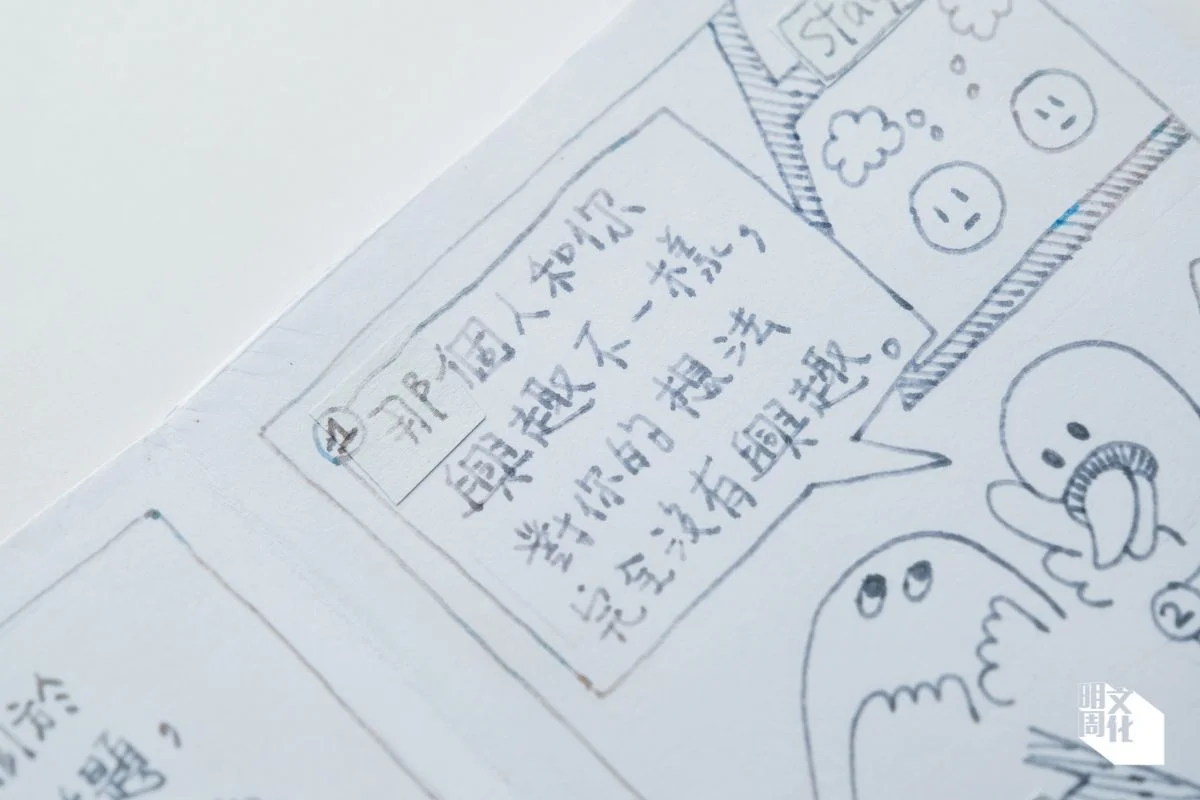 Stay
①那個人和你
興趣不一樣，
對你的想法
完全沒有興趣。
②
於
題，
明周文化